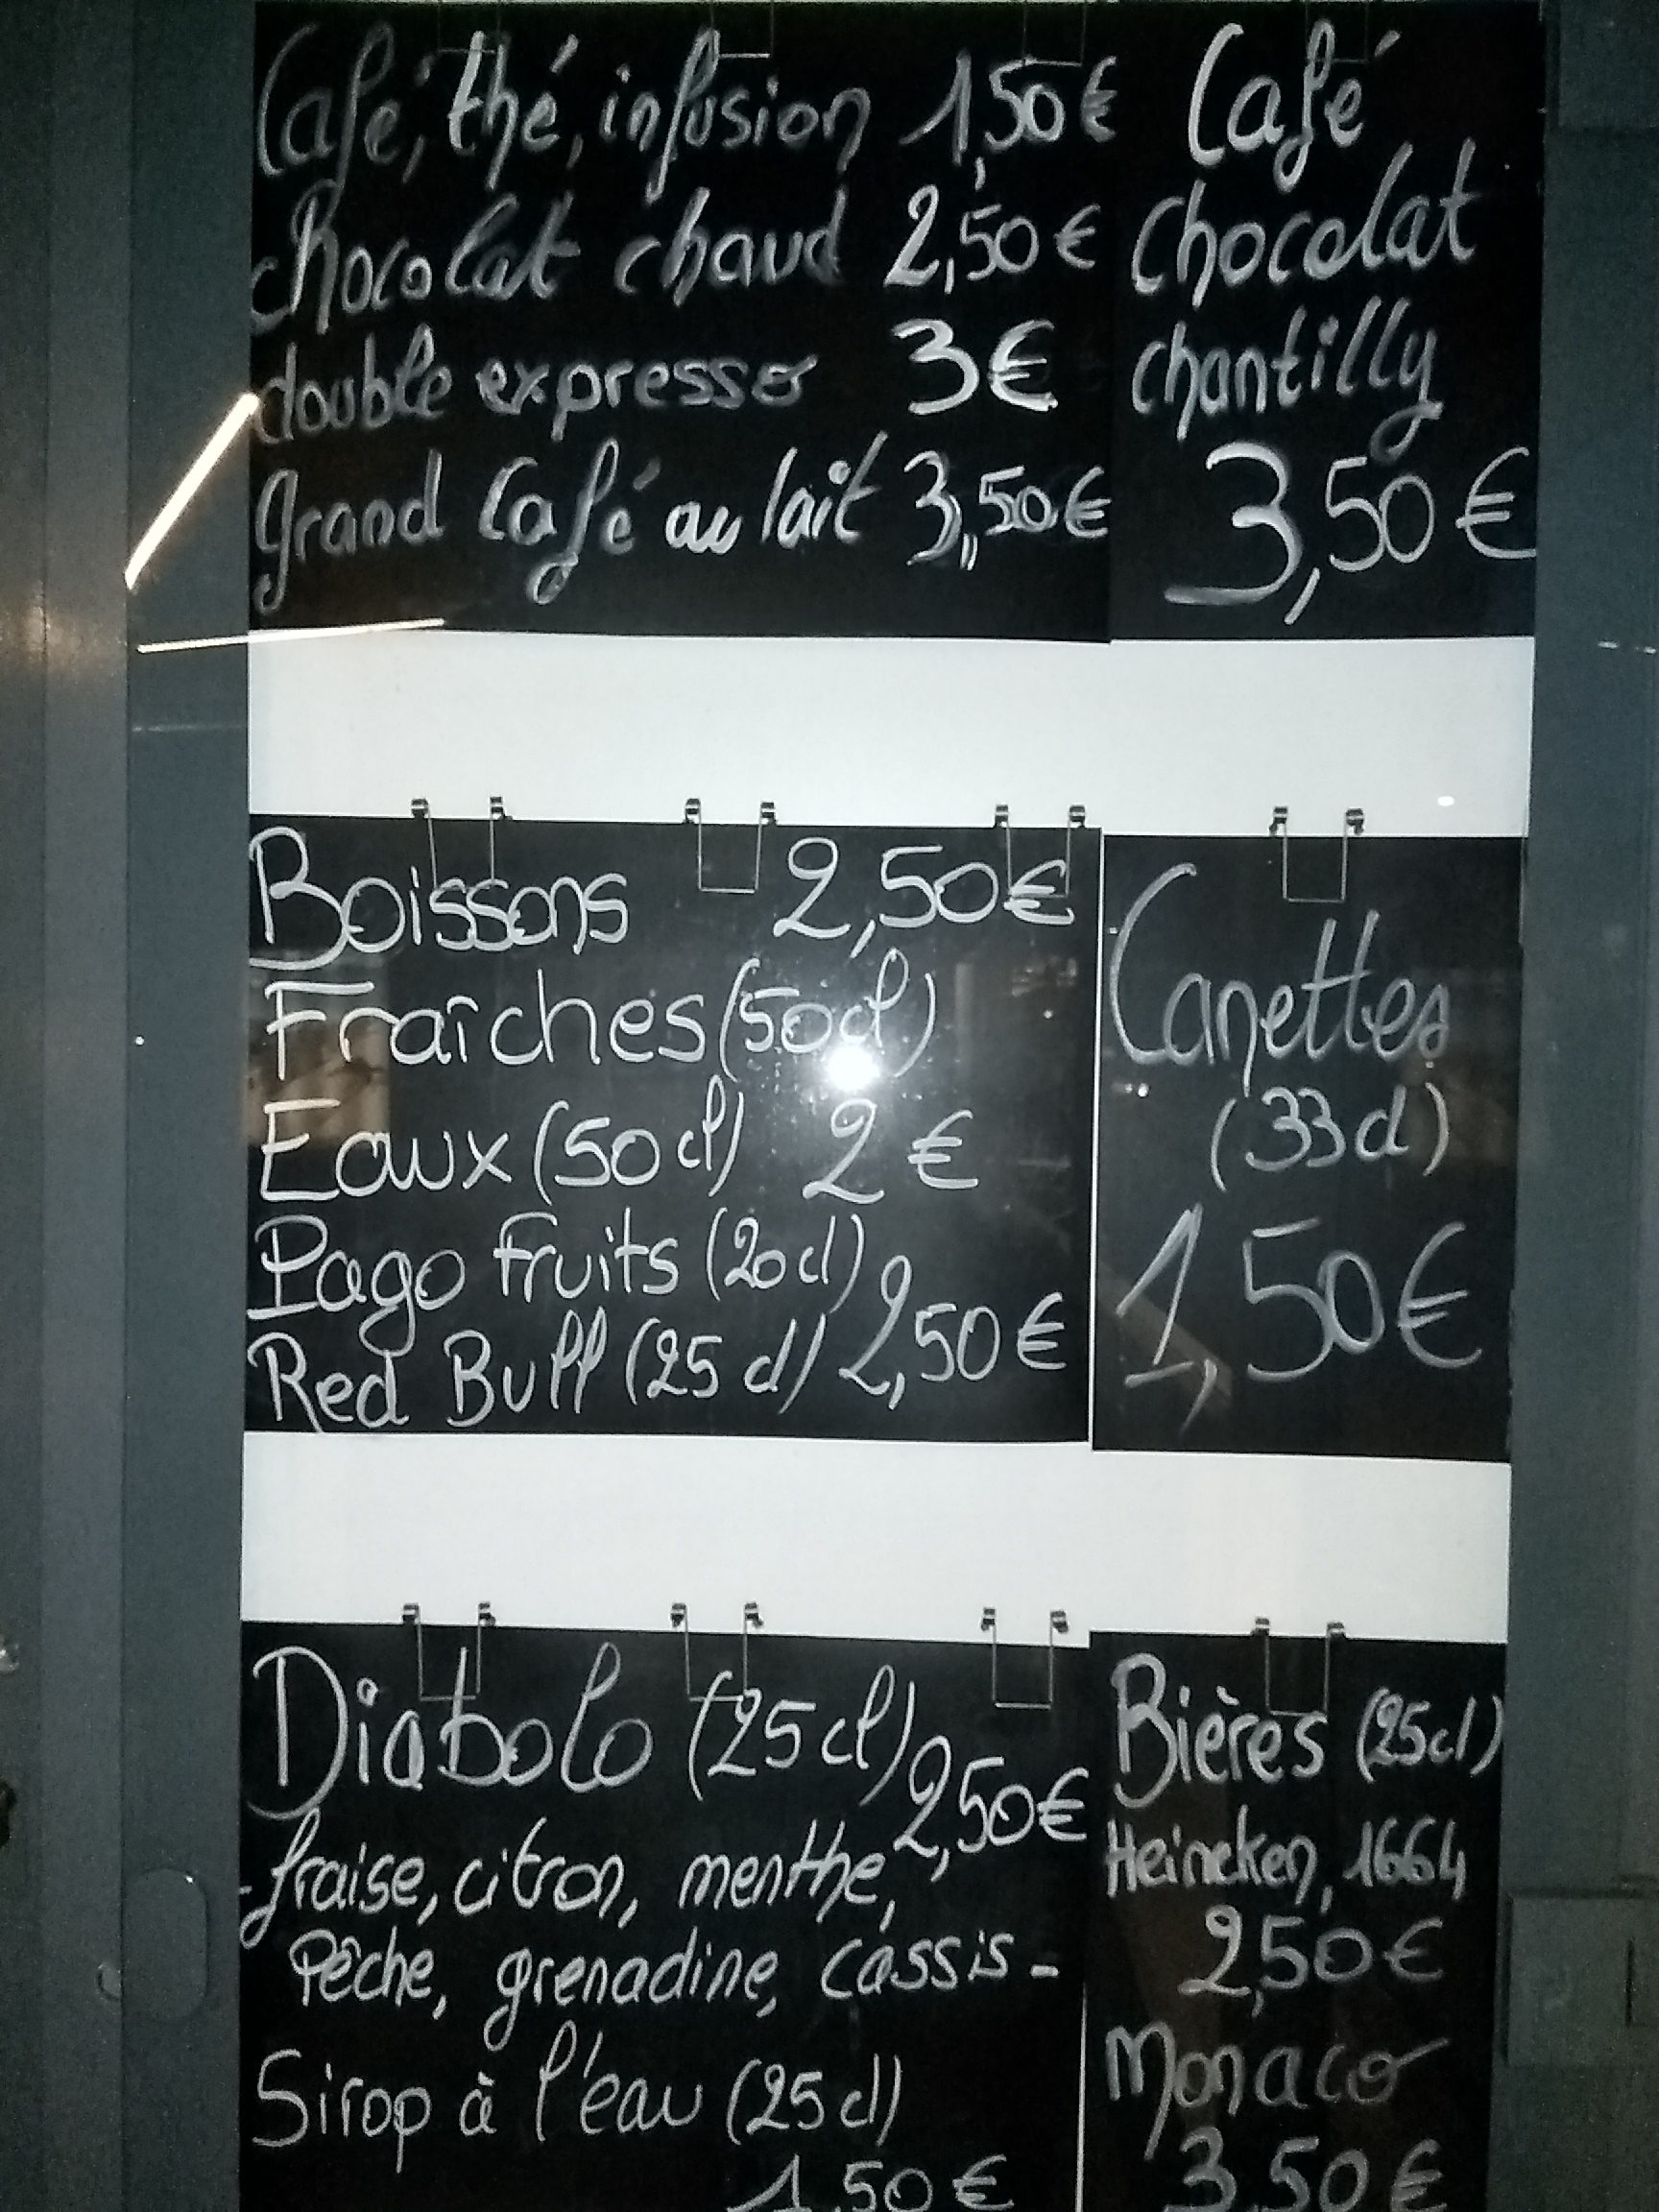 Café, thé, infusion 1,50€
chocolat chaud 2,50€
double expresso 3€
grand Café au lait 3,50€
Café
Chocolat
chantilly
3,50€
Boissons 2,50€
Fraîches (50cl)
Eaux (50cl) 2€
Pago Fruits (20cl)
Red Bull (25cl) 2,50€
Canettes
(33cl)
1,50€
Diabolo (25cl) 2,50€
fraise, citron, menthe,
Pêche, grenadine, cassis-
Sirop à l'eau (25cl)
1,50€
Bières (25cl)
Heineken, 1664
2,50€
Monaco
3,50€